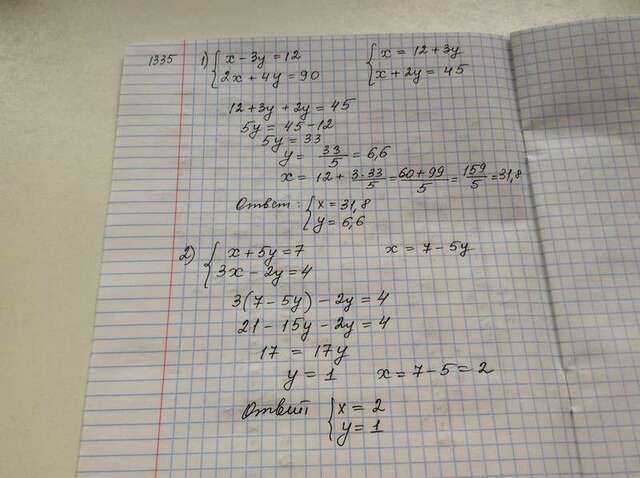 1335 1) { x - 3y = 12 { x = 12 + 3y
2x + 4y = 90 x + 2y = 45
12 + 3y + 2y = 45
5y = 45 - 12
5y = 33
y = 33/5 = 6,6
x = 12 + 3·33/5 = 60 + 99/5 = 159/5 = 31,8
Ответ: { x = 31,8
y = 6,6
2) { x + 5y = 7 x = 7 - 5y
3x - 2y = 4
3(7 - 5y) - 2y = 4
21 - 15y - 2y = 4
17 = 17y
y = 1 x = 7 - 5 = 2
Ответ { x = 2
y = 1